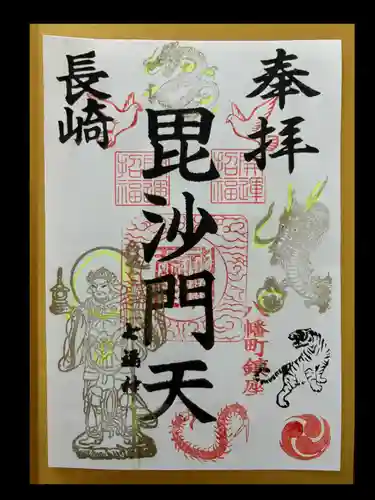 奉拝
毘沙門天
長崎
開運
招福
開運
招福
八幡町鎮座
七福神